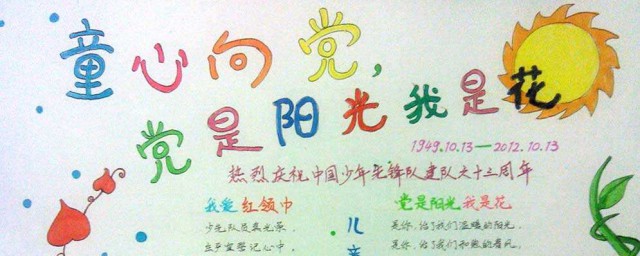 童心向党,
党是阳光我是花
1949.10.13—2012.10.13
热烈庆祝中国少年先锋队建队六十三周年
我爱红领巾
少先队员真光荣,
宣誓记心中,
儿
党是阳光我是花
是你,给了我们温暖的阳光,
是你,给了我们和煦的春风,